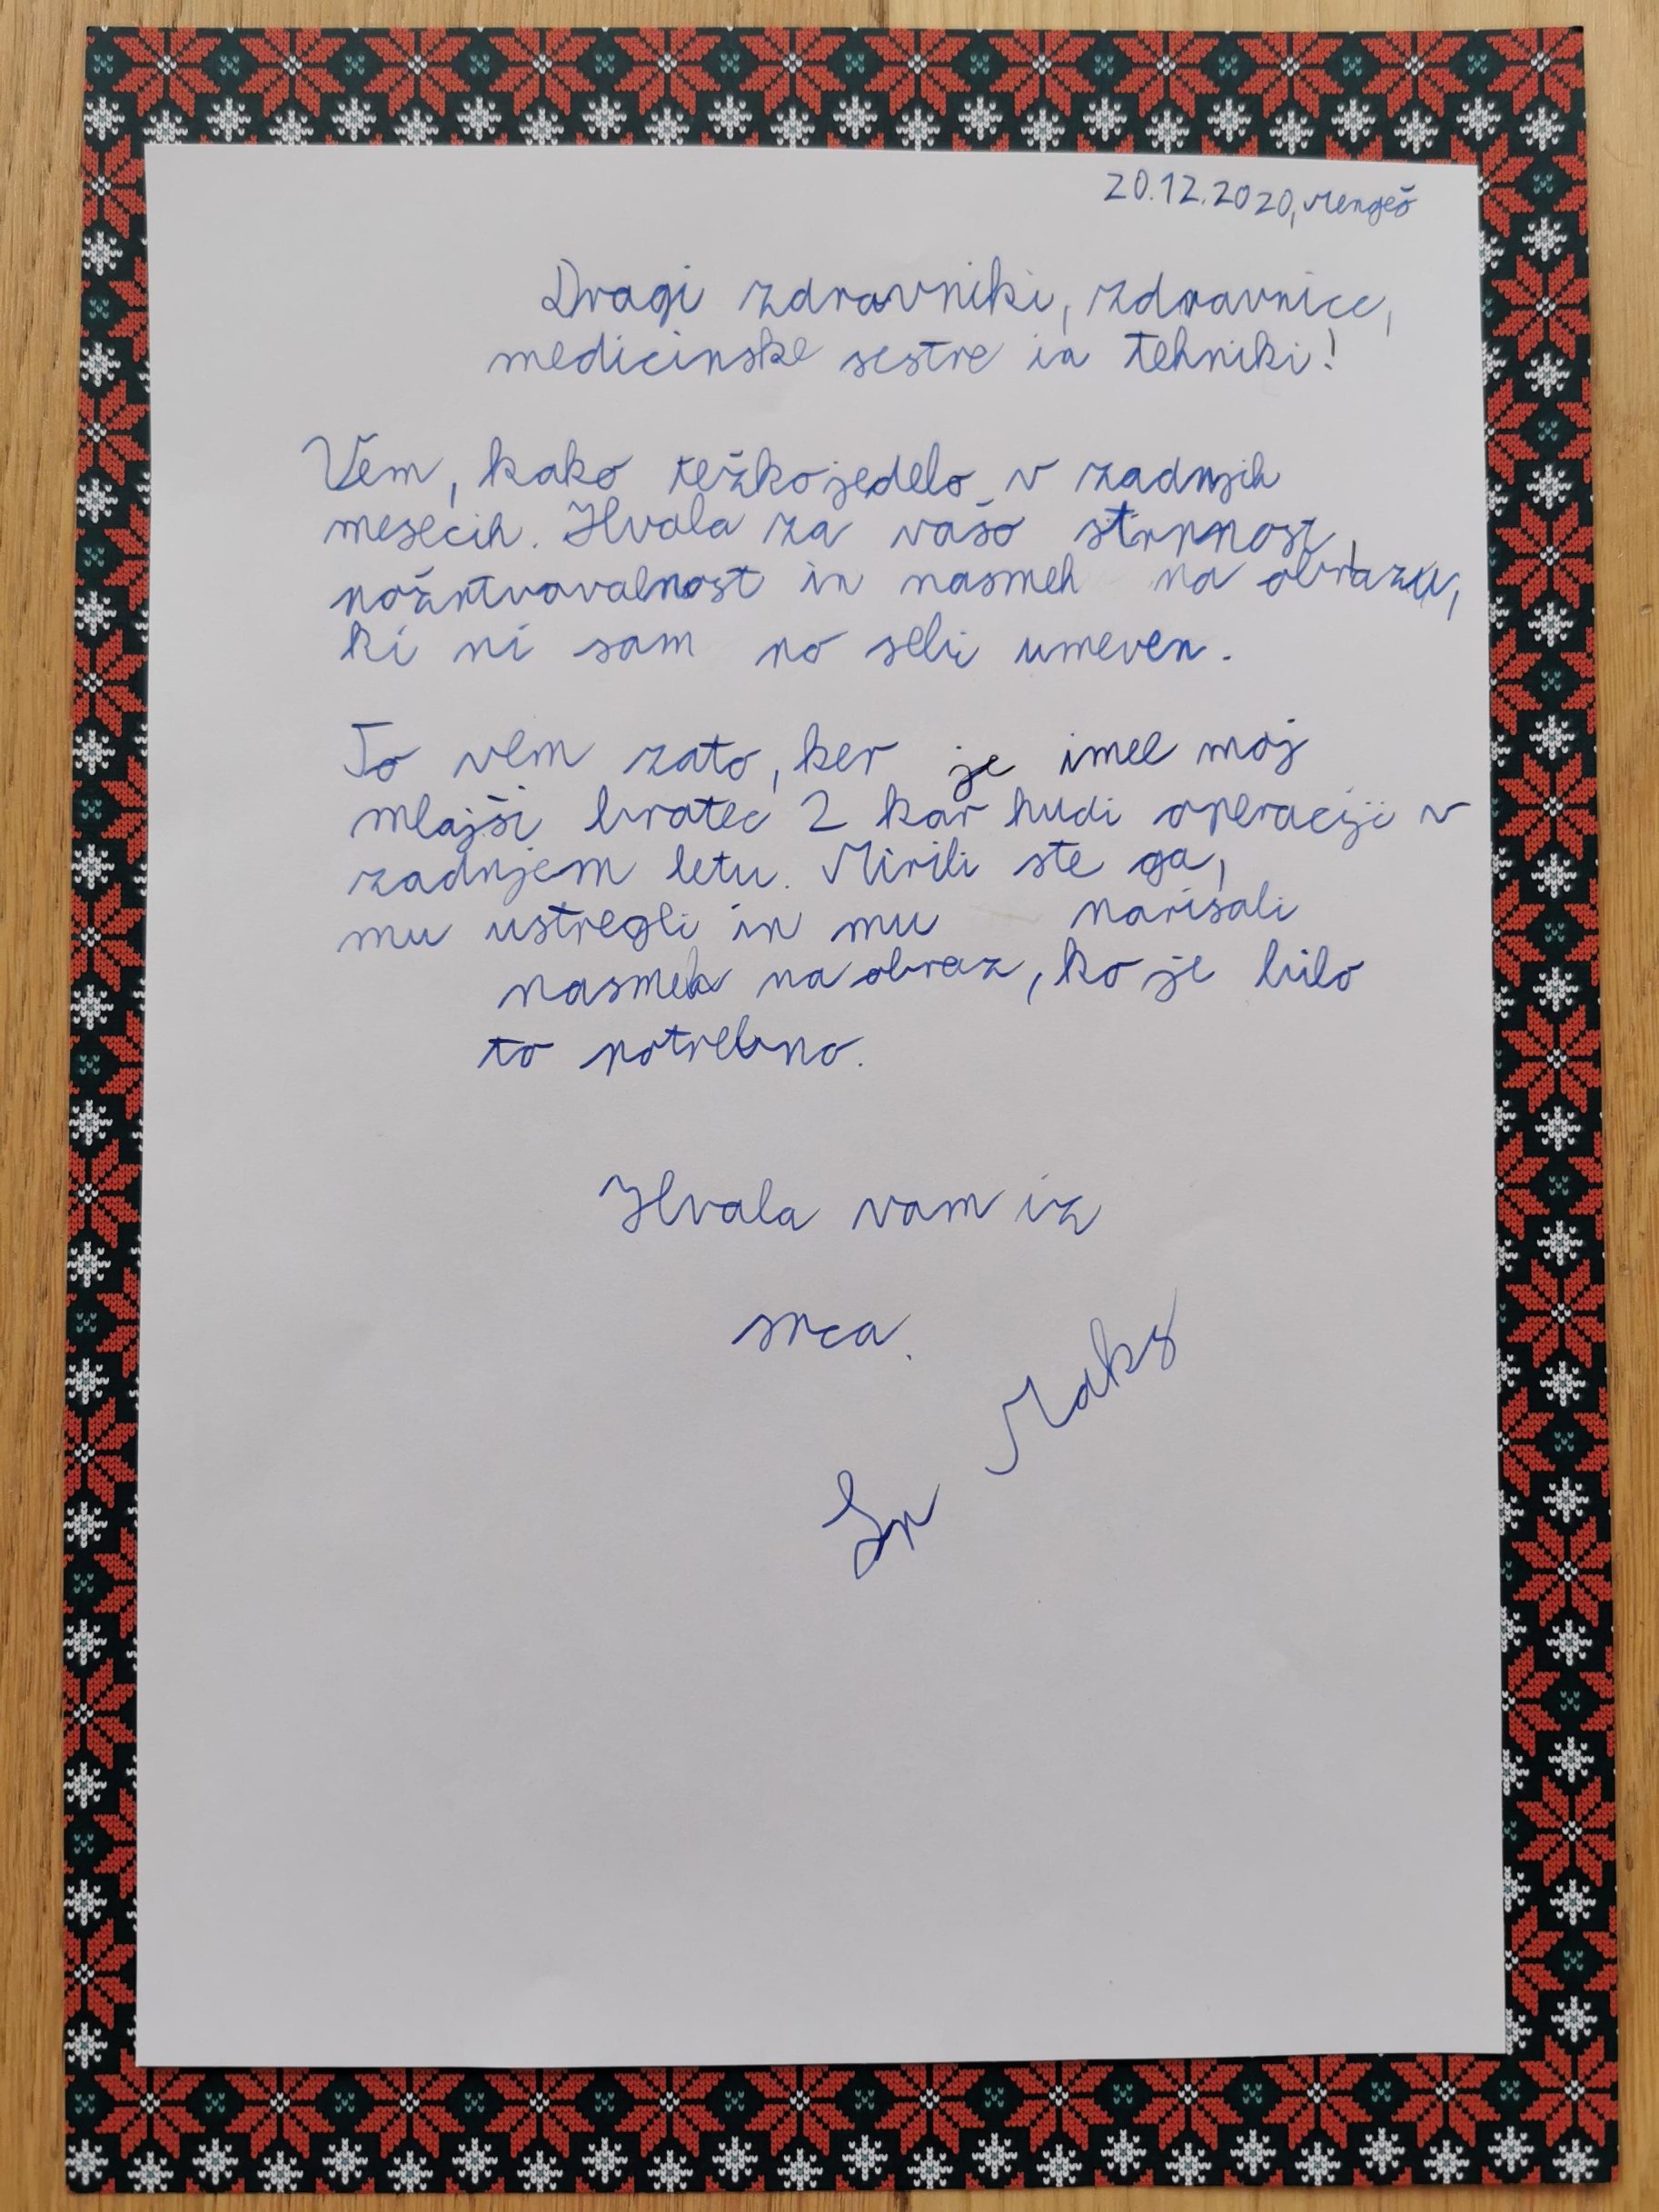 20.12.2020, Mengeš
Dragi zdravniki, zdravnice,
medicinske sestre in tehniki!
Vem, kako težko je delo v zadnjih
mesecih. Hvala za vašo strpnost,
požrtvovalnost in nasmeh na obrazu,
ki ni sam po sebi umeven.
To vem zato, ker je imel moj
mlajši bratec 2 kar hudi operaciji v
zadnjem letu. Mirili ste ga,
mu ustregli in mu narisali
nasmeh na obraz, ko je bilo
to potrebno.
Hvala vam iz
srca.
Lp Maks